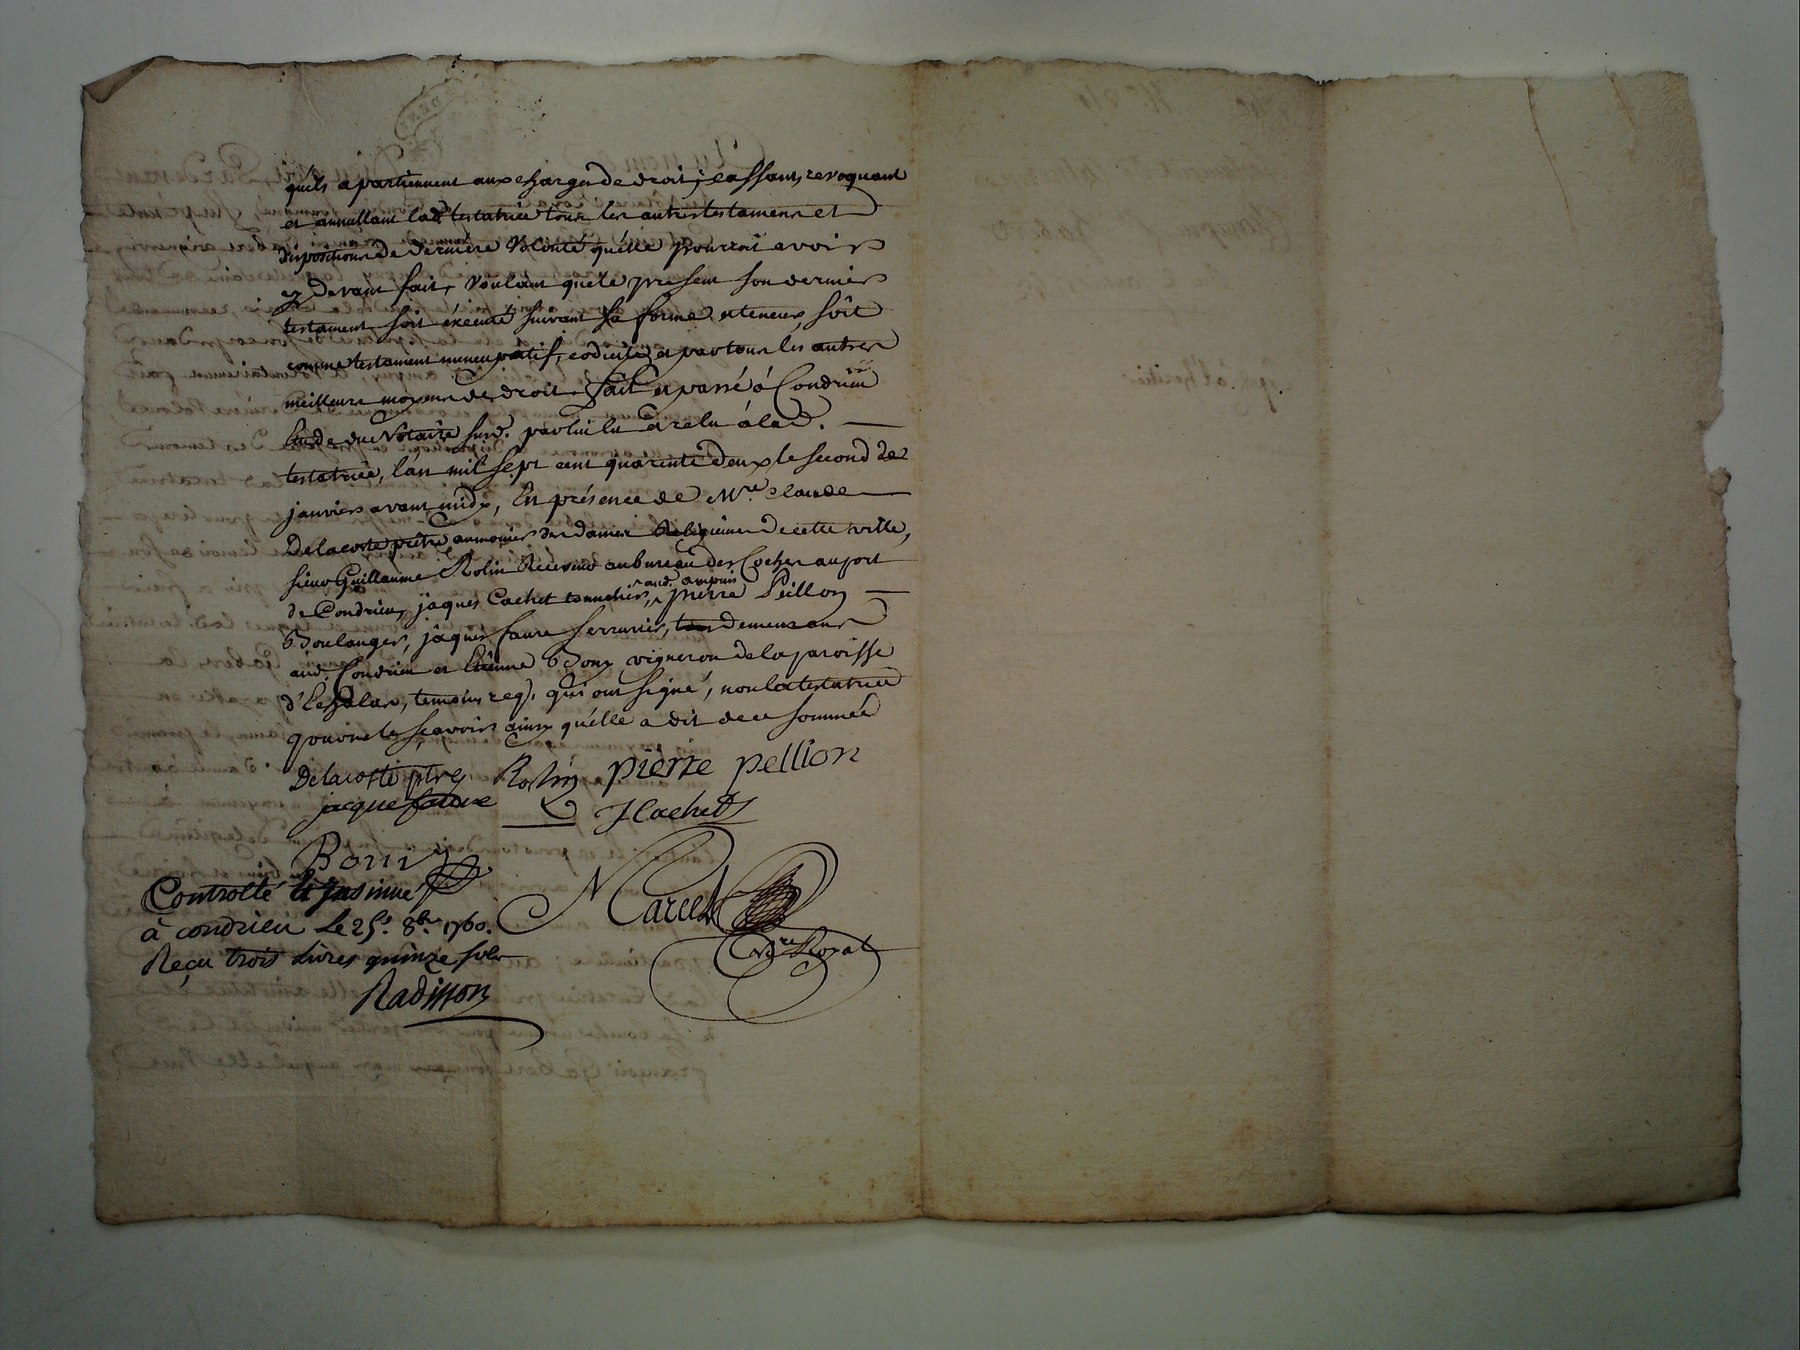 quils apartiennent aux charges de droit; cassant, revoquant
et annullant lad. testatrice tous les autres testamens et
dispositions de derniere Volonté qu'elle pourroit avoir
cy devant fait, Voulant que le present son dernier
testament soit éxecuté suivant sa forme et teneur, soit
comme testament nuncupatif, codicile, et par tous les autres
meilleurs moyens de droit. fait et passé à Condrieu
étude du Notaire susd. par lui lu et relu à lad.
testatrice, l'an mil sept cent quarente deux le second de
janvier avant midy, En présence de Mre. Claude
Delacoste prêtre aumonier des dames Religieuses de cette ville,
sieur Guillaume Rolin Receveur au bureau des Coches au port
de Condrieu, jaques Cachet tonnelier aud. ampuis, pierre Peillon
Boulanger, jaques faure serrurier, demeurans
aud. Condrieu et Etienne Bony vigneron de la paroisse
d'Eschalas, temoins req. qui ont signé, non la testatrice
pour ne le sçavoir ainsy qu'elle a dit de ce sommée
Delacoste ptre Rolin pierre pellion
jacque faure JCachet
Bony
Controllé et insinué
à condrieu le 25e. 8bre. 1760.
Reçu trois livres quinze sols
Marcel
Nre. Royal
Radisson